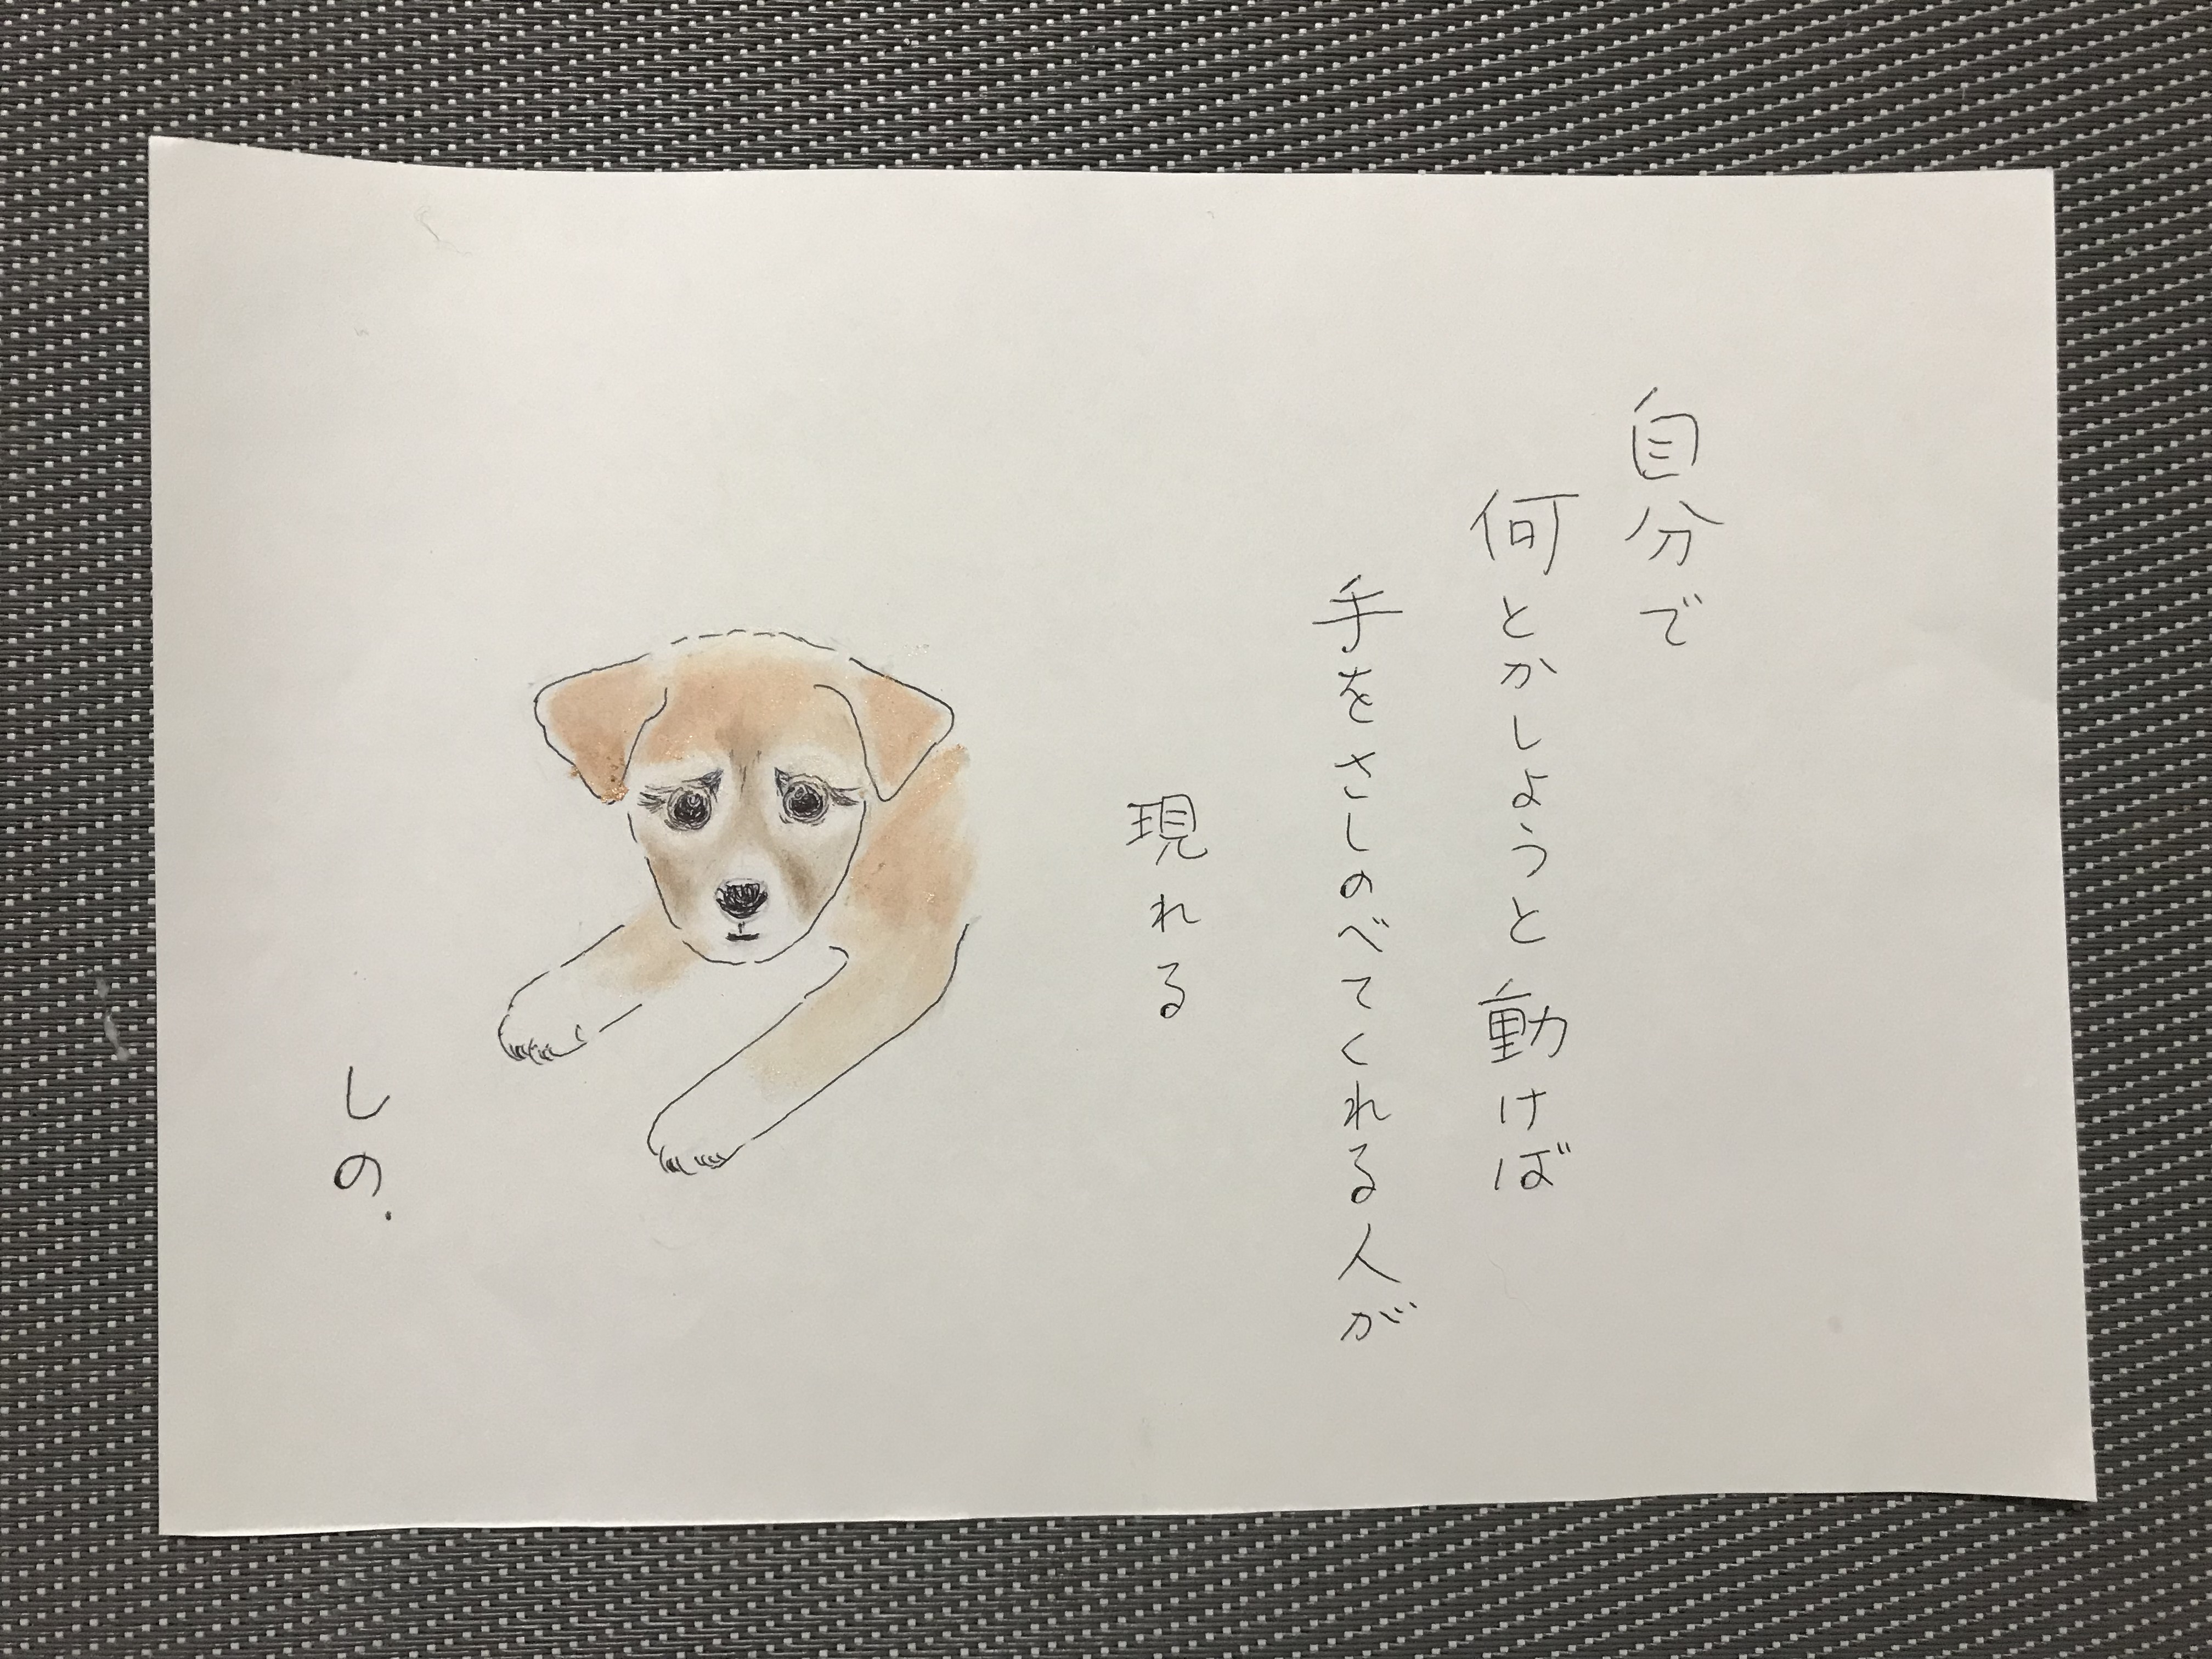 自分で
何とかしようと動けば
手をさしのべてくれる人が
現れる
しの.